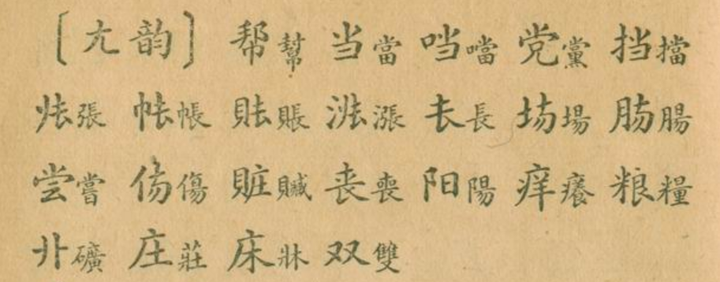 〔ㄤ韵〕 帮幫 当當 𪠽噹 党黨 挡擋
张張 帐帳 账賬 涨漲 长長 场場 肠腸
尝嘗 伤傷 賍贓 丧喪 阳陽 痒癢 粮糧
卝礦 庄莊 床牀 双雙